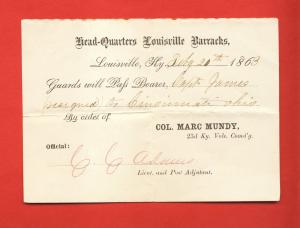 Head-Quarters Louisville Barracks,
Louisville, Ky. Feby 20th 1863
Guards will Pass Bearer, Capt James
to Cincinnati Ohio
By order of
COL. MARC MUNDY,
23d Ky. Vols. Comd'g.
Official:
C C Adams
Lieut. and Post Adjutant.